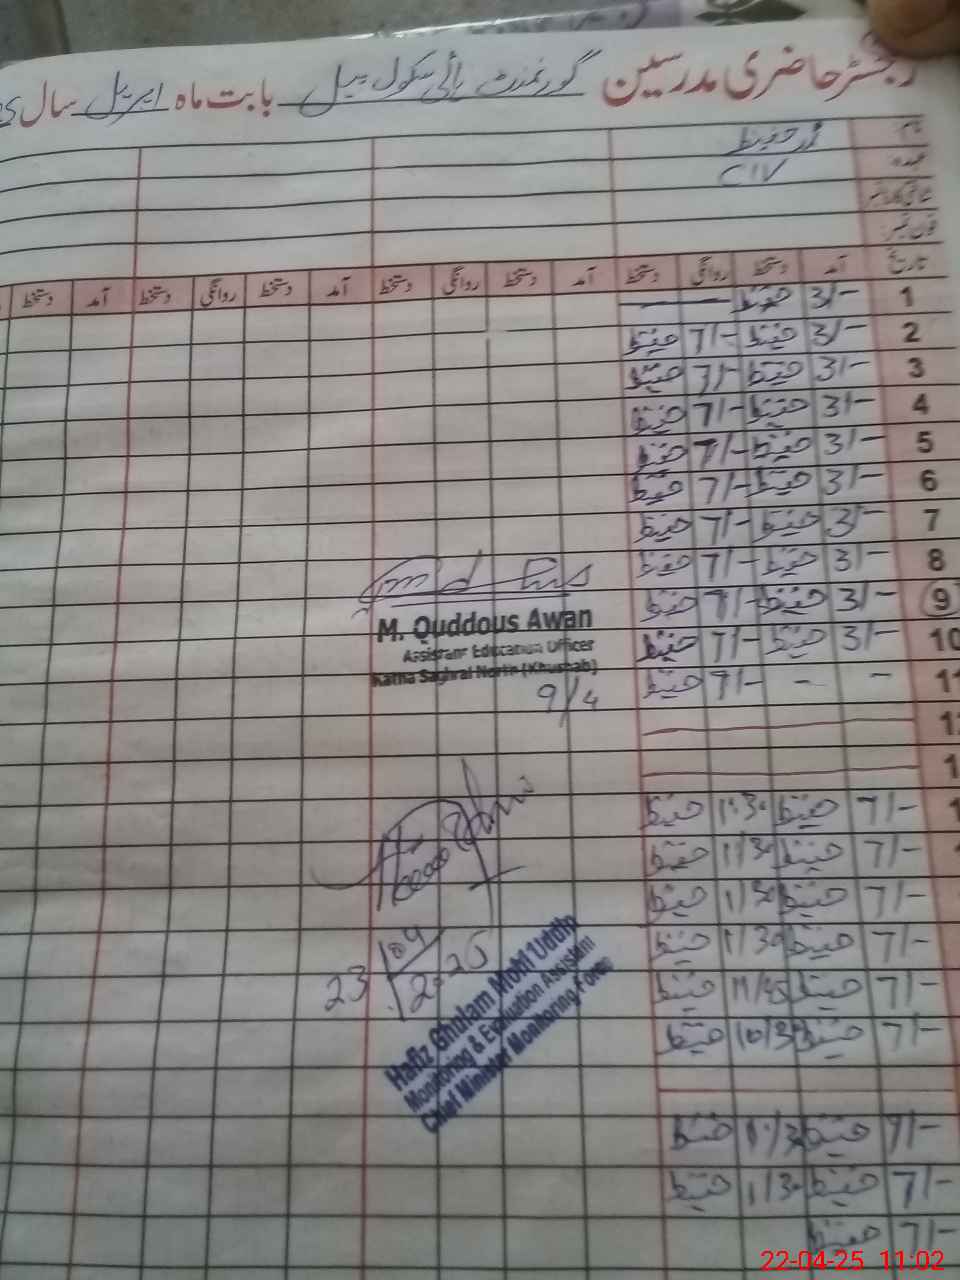 رجسٹر حاضری مدرسین گورنمنٹ ہائی سکول بابت ماہ اپریل سال
نام محمد حفیظ
عہدہ CIV
شناختی کارڈ نمبر
فون نمبر
تاریخ آمد دستخط روانگی دستخط آمد دستخط روانگی دستخط آمد دستخط روانگی دستخط آمد دستخط
1 3/- حفیظ
2 3/- حفیظ 7/- حفیظ
3 3/- حفیظ 7/- حفیظ
4 3/- حفیظ 7/- حفیظ
5 3/- حفیظ 7/- حفیظ
6 3/- حفیظ 7/- حفیظ
7 3/- حفیظ 7/- حفیظ
8 3/- حفیظ 7/- حفیظ
9 3/- حفیظ 7/- حفیظ
10 3/- حفیظ 7/- حفیظ
11 - - 9/- حفیظ
M. Quddous Awan
Assistant Education Officer
Katha Saghral North (Khushab)
9/4
7/- حفیظ 1:30 حفیظ
7/- حفیظ 1/30 حفیظ
7/- حفیظ 1/30 حفیظ
7/- حفیظ 1/30 حفیظ
7/- حفیظ 11/45 حفیظ
7/- حفیظ 10/30 حفیظ
Hafiz Ghulam Mohi Uddin
Monitoring & Evaluation Assistant
Chief Minister Monitoring Force
9/- حفیظ حفیظ
7/- حفیظ 1/30 حفیظ
7/- حفیظ
22-04-25 11:02